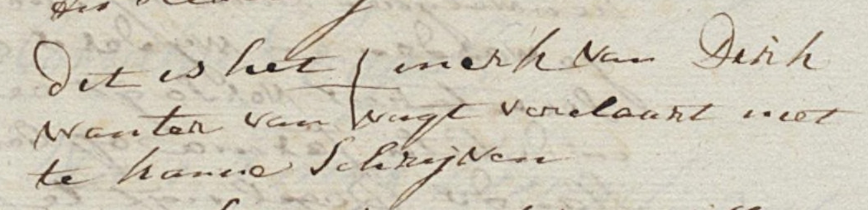 Dit is het merk van Dirk
Wouter van Vugt verclaart niet
te konne Schrijven